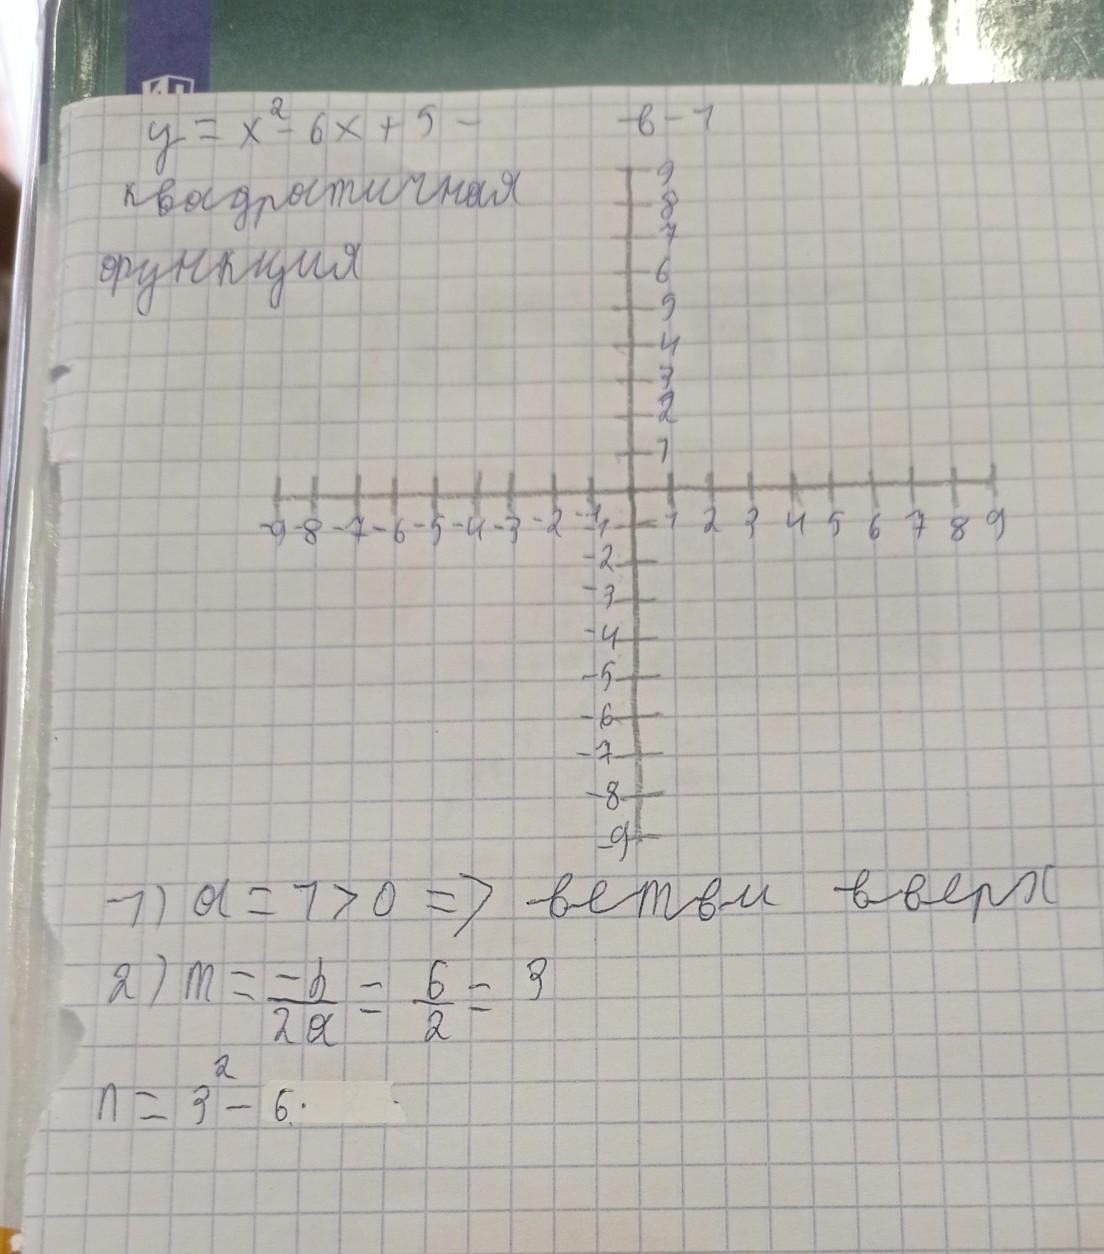 y = x² - 6x + 5 -
квадратичная
функция
в-1
9
8
7
6
5
4
3
2
1
-9 -8 -7 -6 -5 -4 -3 -2 -1 1 2 3 4 5 6 7 8 9
-1
-2
-3
-4
-5
-6
-7
-8
-9
1) a = 1 > 0 => ветви вверх
2) m = -b/2a = 6/2 = 3
n = 3² - 6·